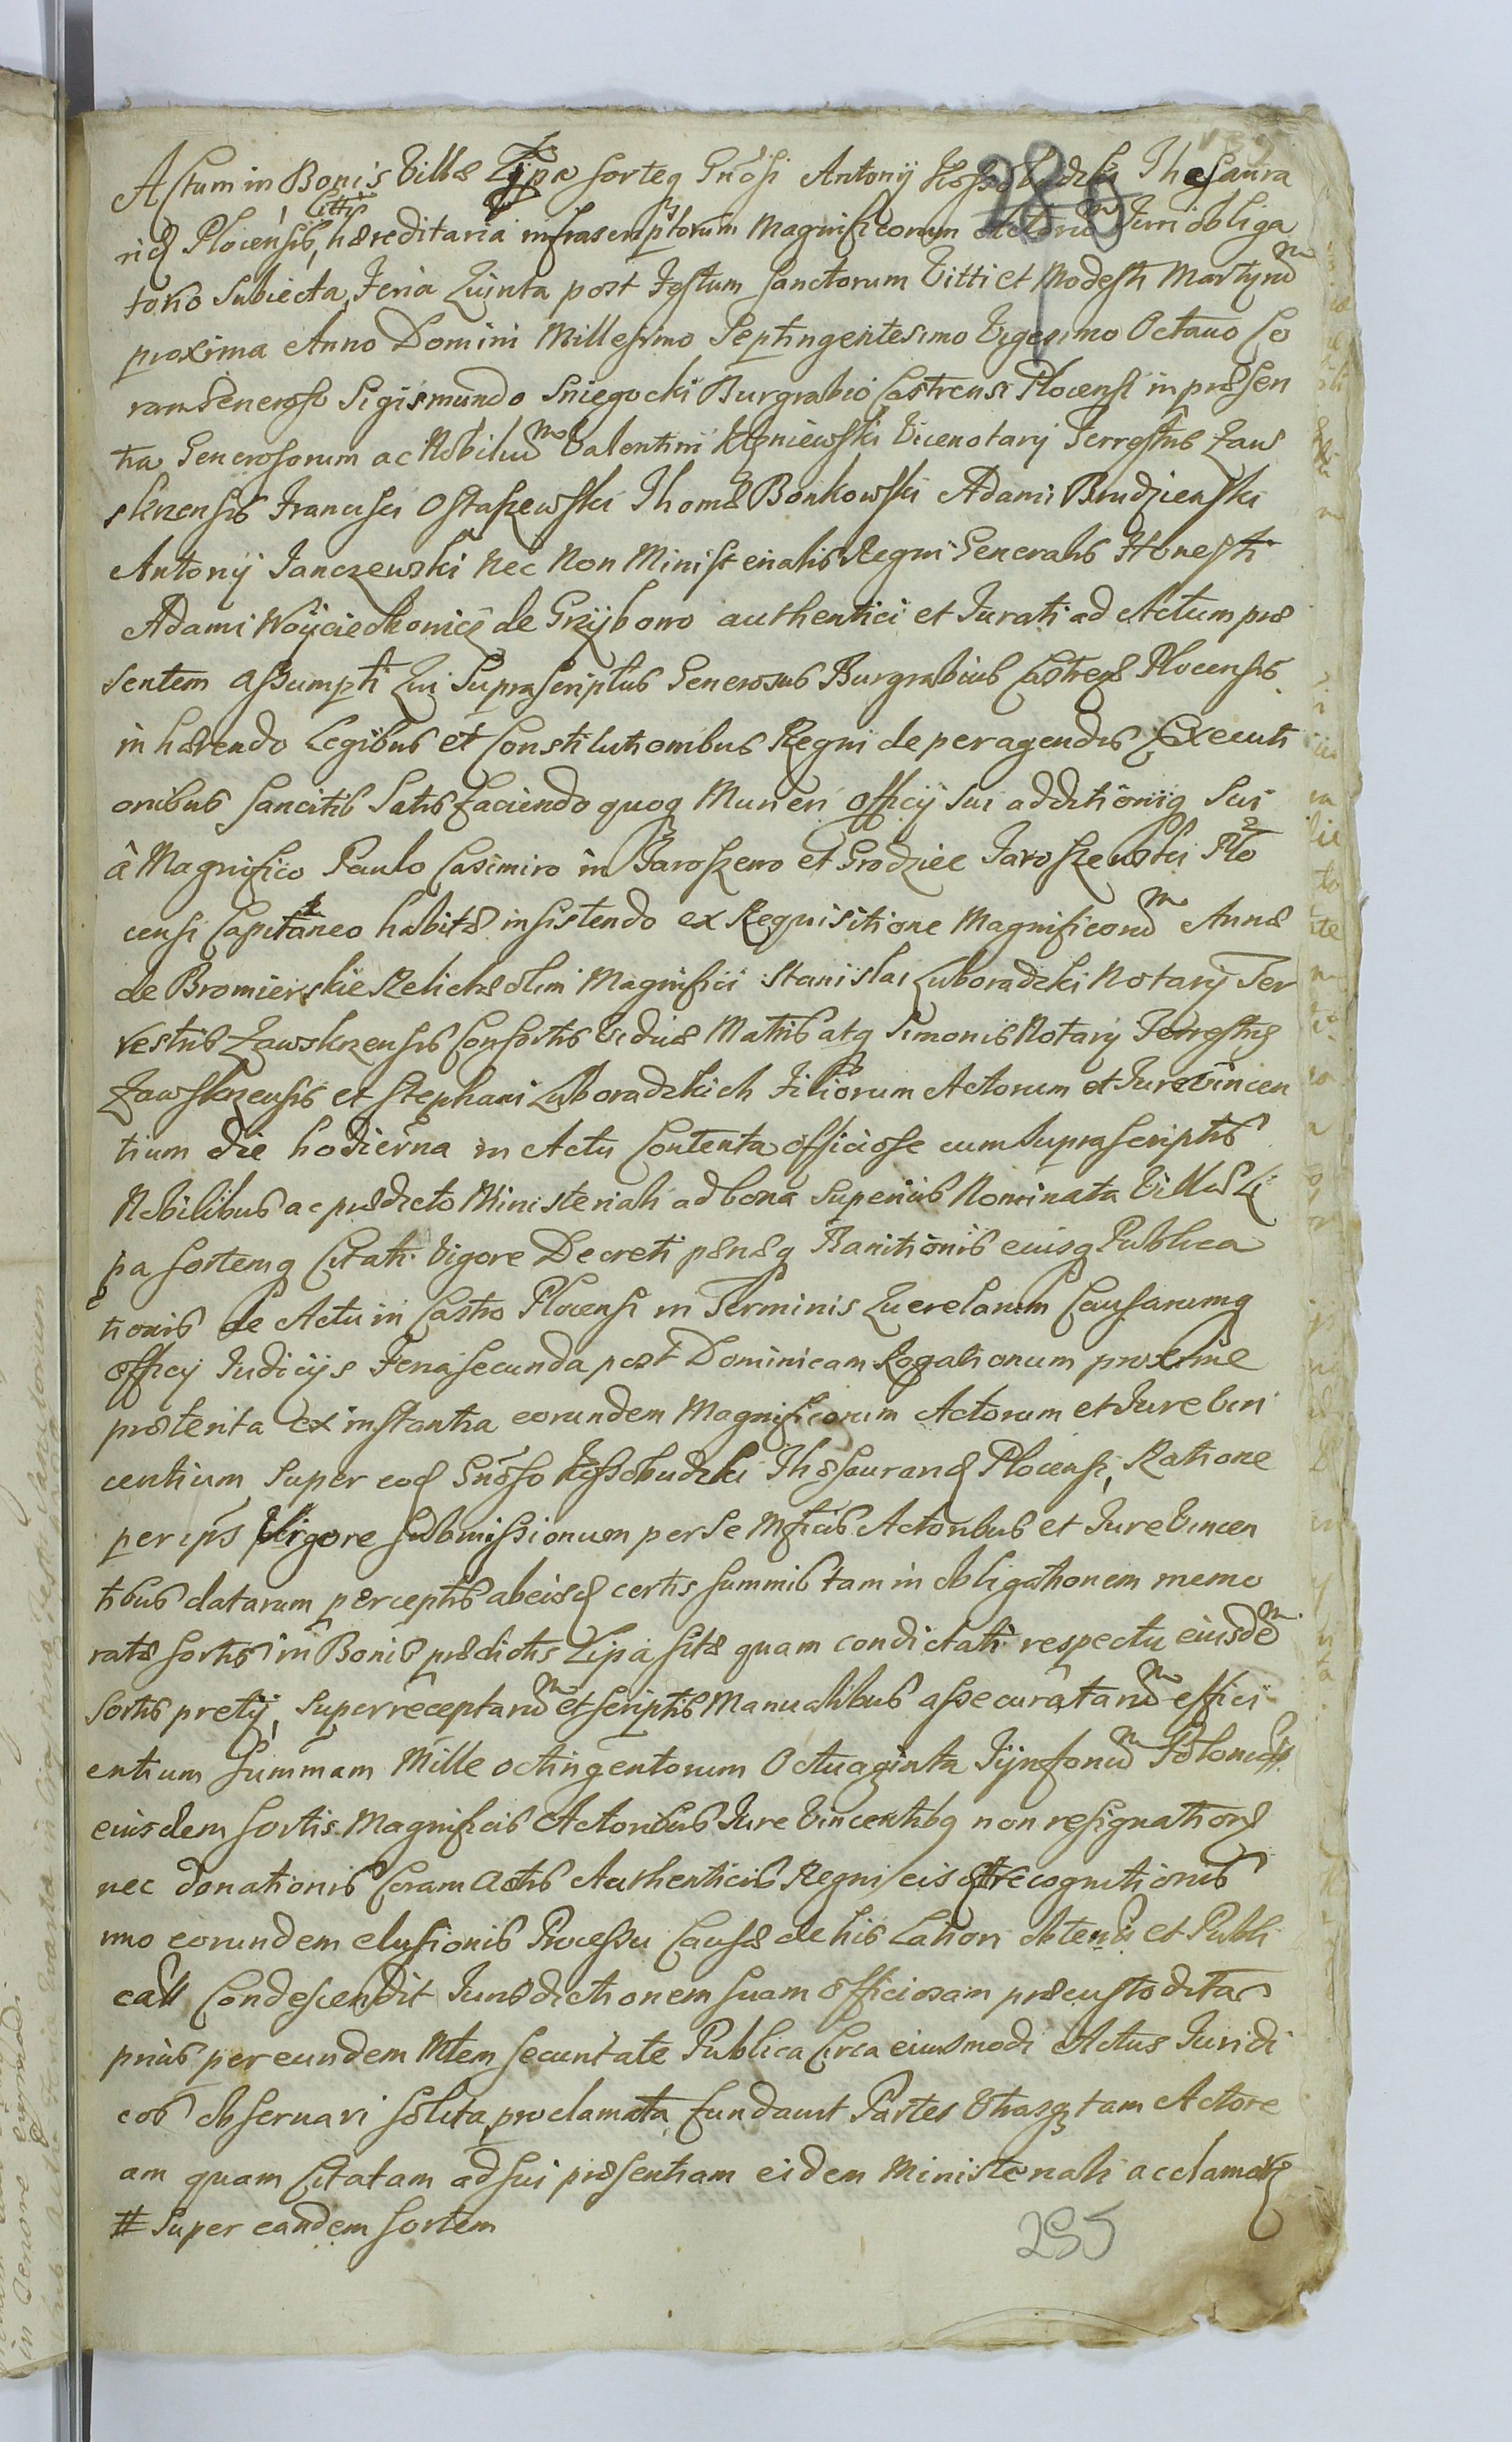 Actum in Bonis Villæ Lipa sorteq Gnosi Antonij Kossobudzki Thesaura
rij Plocensis, Citti hæreditaria infrascriptorum Magnificorum Actorum Juri obliga
torio Subiecta, Feria Quinta post Festum Sanctorum Vitti et Modesti Martyrum
proxima Anno Domini Millesimo Septingentesimo Vigesimo Octavo Co
ram Generoso Sigismundo Sniegocki Burgrabio Castrensi Plocensi in præsen
tia Generosorum ac Nobilium Valentini Vicenotarij Terrestris Zaw
skrensis Francisci Ostaszewski Thomæ Bonkowski Adami Brudzienski
Antonij Janczewski nec non Ministerialis Regni Generalis Honesti
Adami Woyciechowicz de Grzybowo authentici et Jurati ad Actum præ
sentem assumpti Qui Suprascriptus Generosus Burgrabius Castren Plocensis
inhærendo Legibus et Constitutionibus Regni de peragendis Executi
onibus Sancitis Satisfaciendo quoq Muneri officij sui additioniq Sui
â Magnifico Paulo Casimiro in Jaroszewo et Grodziec Jaroszewski Plo
censi Capitaneo habitæ insistendo ex Requisitione Magnificorum Annæ
de Bromierskie Relictæ olim Magnifici Stanislai Luboradzki Notarij Ter
restris Zawskrzensis Consortis Viduæ Matris atq Simonis Notarij Terrestris
Zawskrzensis et Stephani Luboradzkich Filiorum Actorum et Jurevincen
tium die hodierna in Actu Contenta officiose cum Suprascriptis
Nobilibus ac prædicto Ministeriali ad bona superius Nominata Villæ Li
pa sortemq Citati Vigore Decreti pænæq Banitionis eiusq Publica
tionis de Actu in Castro Plocensi in Terminis Querelarum Causarumq
officij Judicijs Feria secunda post Dominicam Rogationum proxime
præterita ex instantia eorundem Magnificorum Actorum et Jurevin
centium Super eod Gnoso Kossobudzki Thesaurario Plocensi, Ratione
per ips Vigore Submissionum per se Mficis Actoribus et Jure Vincen
tibus datarum perceptis ab eisd certis summis tam in obligationem memo
ratæ sortis in Bonis prædictis Lipa sitæ quam condictati respectu eiusdem
sortis pretij, superreceptarum et scriptis Manualibus assecuratarum effici
entium Summam Mille octingentorum Octuaginta Tynfonum Polonical #
eiusdem sortis Magnificis Actoribus Jure Vincentibq non resignationis
nec donationis Coram Actis Authenticis Regni eisd recognitionis
imo eorundem elusionis Processu Causæ de his Latiori obtentis et Publi
catis Condescendit Jurisdictionem suam officiosam præcustodita
prius per eundem Mtem securitate Publica Circa eiusmodi Actus Juridi
cos observari solita proclamata fundavit Partes Utrasq tam Actore
am quam Citatam ad sui præsentiam eidem Ministeriali acclamari
# Super eandem sortem
295